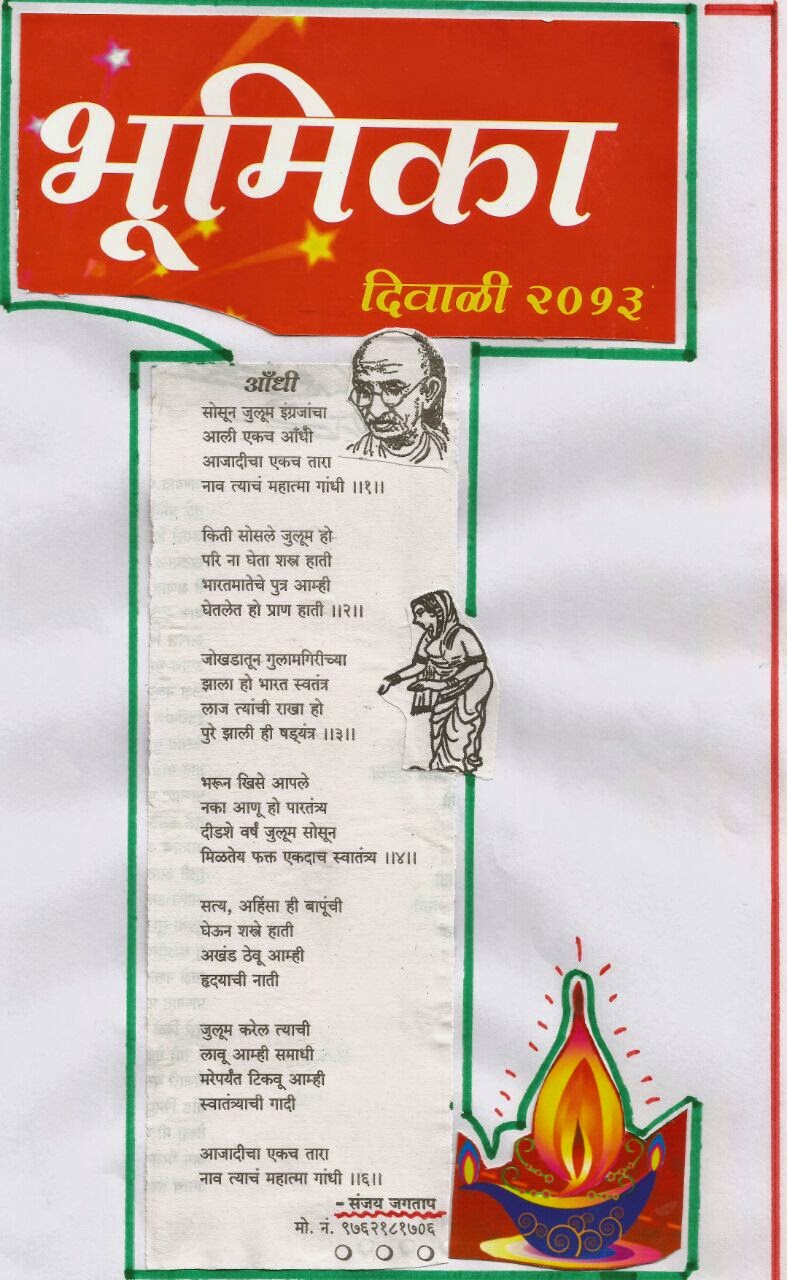 भूमिका
दिवाळी २०१३
आँधी
सोसून जुलूम इंग्रजांचा
आली एकच आँधी
आजादीचा एकच तारा
नाव त्याचं महात्मा गांधी ।।१।।
किती सोसले जुलूम हो
परि ना घेता शस्त्र हाती
भारतमातेचे पुत्र आम्ही
घेतलेत हो प्राण हाती ।।२।।
जोखडातून गुलामगिरीच्या
झाला हो भारत स्वतंत्र
लाज त्यांची राखा हो
पुरे झाली ही षड्यंत्र ।।३।।
भरून खिसे आपले
नका आणू हो पारतंत्र्य
दीडशे वर्षं जुलूम सोसून
मिळतेय फक्त एकदाच स्वातंत्र्य ।।४।।
सत्य, अहिंसा ही बापूंची
घेऊन शस्त्रे हाती
अखंड ठेवू आम्ही
हृदयाची नाती
जुलूम करेल त्याची
लावू आम्ही समाधी
मरेपर्यंत टिकवू आम्ही
स्वातंत्र्याची गादी
आजादीचा एकच तारा
नाव त्याचं महात्मा गांधी ।।६।।
- संजय जगताप
मो. नं. ९७६२१८१७०६